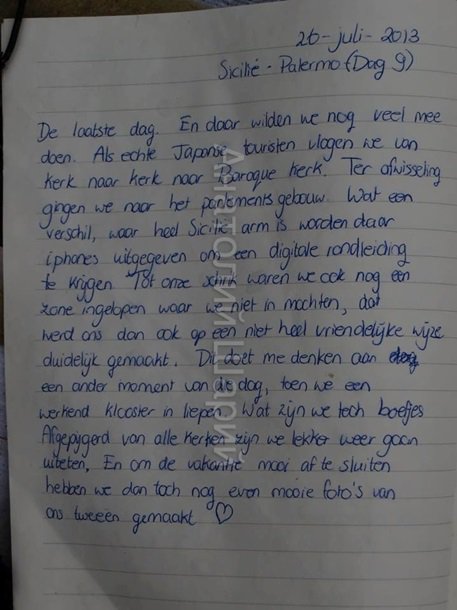 26-juli-2013
Sicilië - Palermo (Dag 9)
De laatste dag. En daar wilden we nog veel mee
doen. Als echte Japanse touristen vlogen we van
kerk naar kerk naar Baroque kerk. Ter afwisseling
gingen we naar het parlementsgebouw. Wat een
verschil, waar heel Sicilië arm is worden daar
iphone's uitgegeven om een digitale rondleiding
te krijgen. Tot onze schrik waren we ook nog een
zone ingelopen waar we niet in mochten, dat
werd ons dan ook op een niet heel vriendelijke wijze
duidelijk gemaakt. Dit doet me denken aan
een ander moment van de dag, toen we een
werkend klooster in liepen. Wat zijn we toch boefjes
Afgepijgerd van alle kerken zijn we lekker weer gaan
uiteten, En om de vakantie mooi af te sluiten
hebben we dan toch nog even mooie foto's van
ons tweeën gemaakt ♡
АНАТОЛИЙ ШАРИЙ